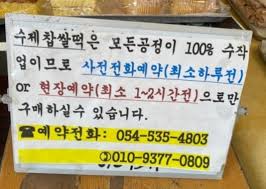 수제찹쌀떡은 모든공정이 100% 수작
업이므로 사전전화예약(최소하루전)
or 현장예약(최소 1~2시간전)으로만
구매하실수 있습니다.
☎예약전화: 054-535-4803
③010-9377-0809